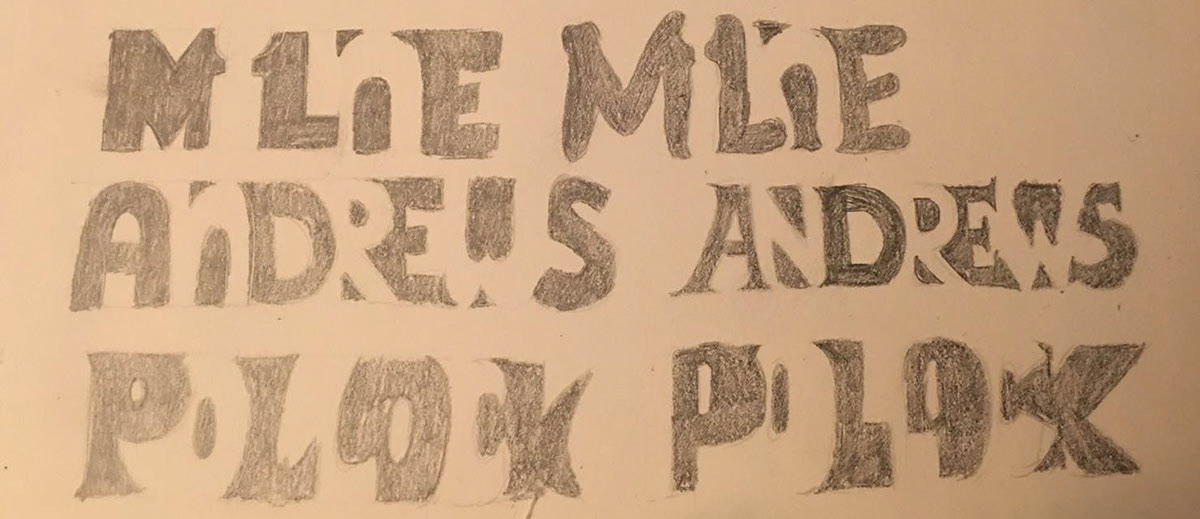 MiLnE MiLnE
AnDREWS ANDREWS
POLLOCK POLLOCK